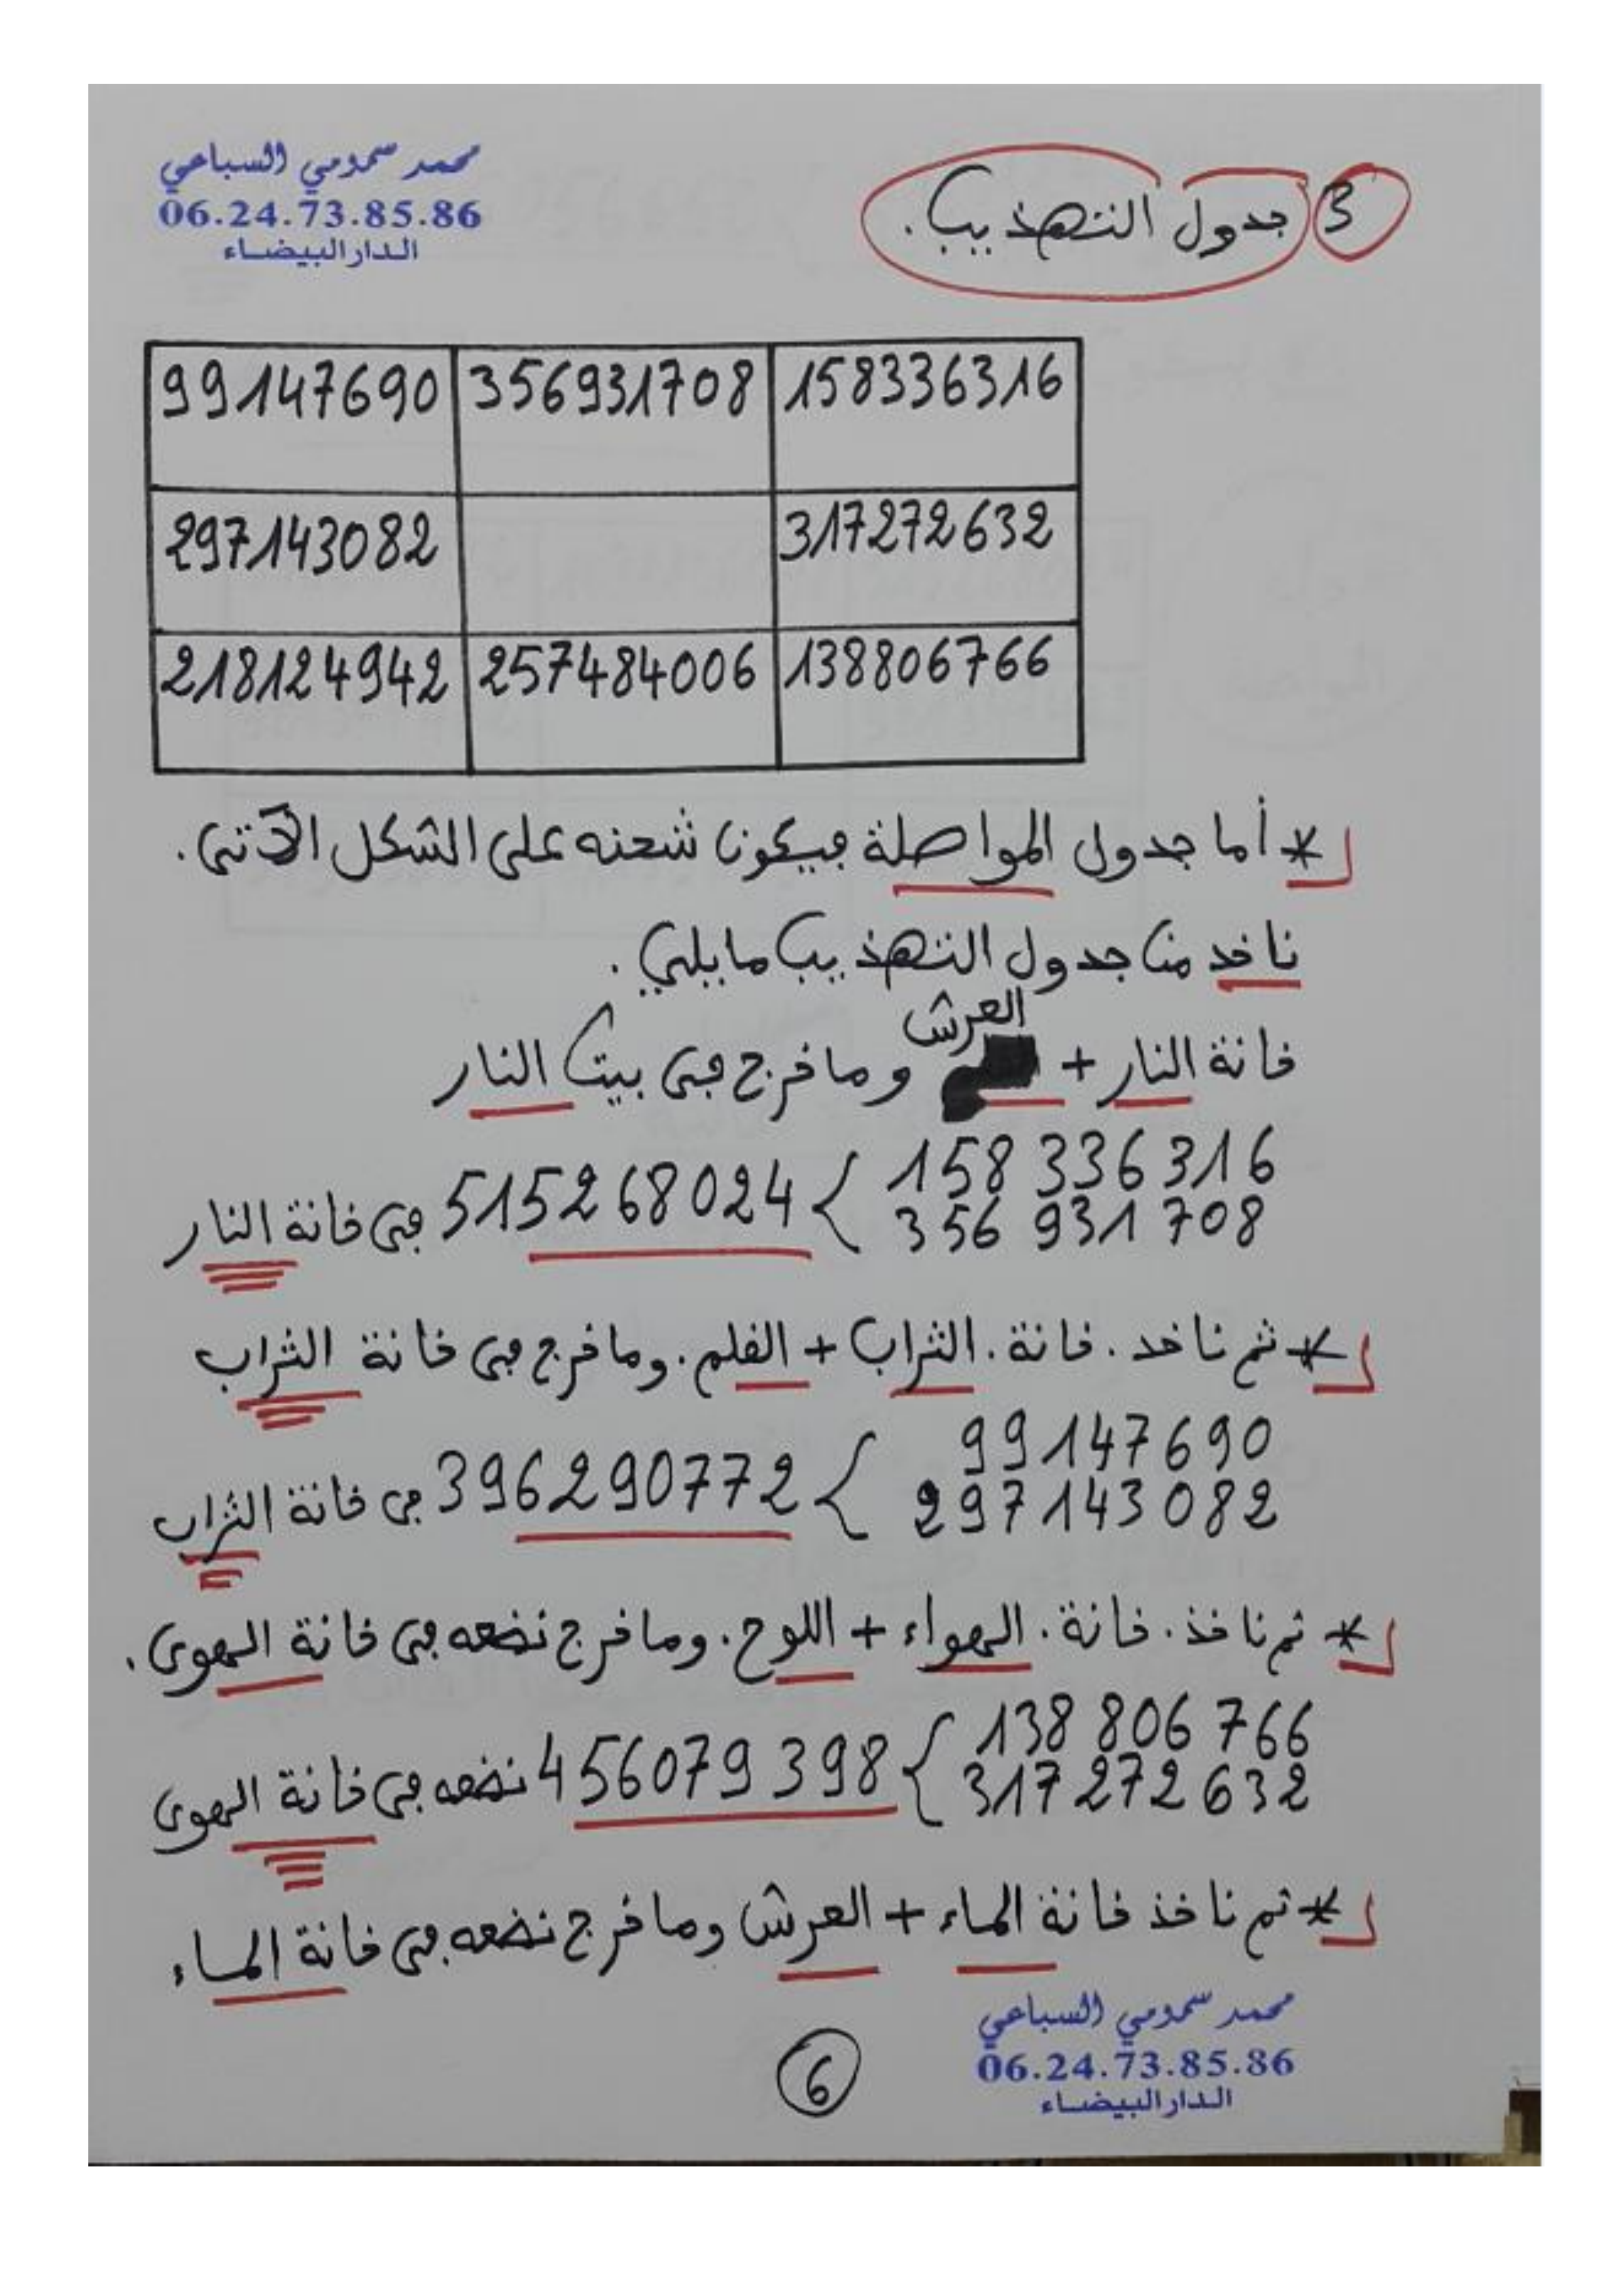 محمد سمومي السباعي
06.24.73.85.86
الدار البيضاء
3 جدول التهذيب.
99147690 356931708 158336316
297143082 317272632
218124942 257484006 138806766
* أما جدول المواصلة فيكون شحنه على الشكل الآتي.
ناخد من جدول التهذيب مايلي.
العرش
خانة النار + وما خرج في بيت النار
158 336 316
515268024 في خانة النار
356 931 708
* ثم ناخد. خانة. التراب + القلم. وما خرج في خانة التراب
99147690
396290772 في خانة التراب
297143082
* ثم ناخذ. خانة. الهواء + اللوح. وما خرج نضعه في خانة الهوى.
138 806 766
456079398 نضعه في خانة الهوى
317 272 632
* ثم ناخذ خانة الماء + العرش وما خرج نضعه في خانة الماء
محمد سمومي السباعي
06.24.73.85.86
الدار البيضاء
6